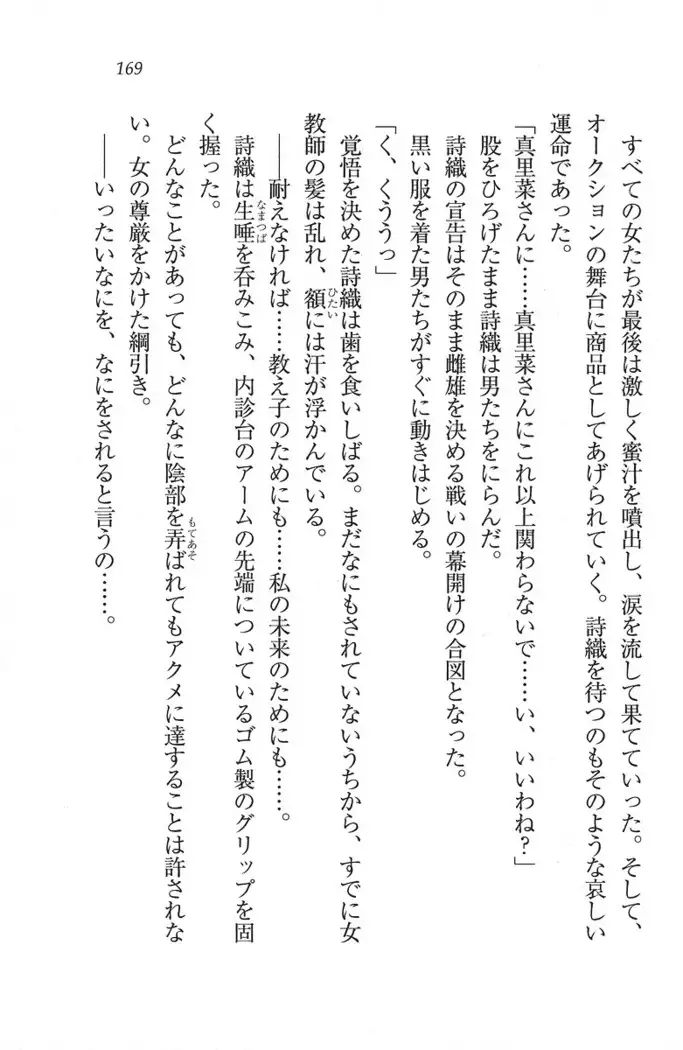 169
すべての女たちが最後は激しく蜜汁を噴出し、涙を流して果てていった。そして、
オークションの舞台に商品としてあげられていく。詩織を待つのもそのような哀しい
運命であった。
「真里菜さんに……真里菜さんにこれ以上関わらないで……い、いいわね？」
股をひろげたまま詩織は男たちをにらんだ。
詩織の宣告はそのまま雌雄を決める戦いの幕開けの合図となった。
黒い服を着た男たちがすぐに動きはじめる。
「く、くううっ」
覚悟を決めた詩織は歯を食いしばる。まだなにもされていないうちから、すでに女
教師の髪は乱れ、額には汗が浮かんでいる。
ひたい
――耐えなければ……教え子のためにも……私の未来のためにも……。
詩織は生唾を呑みこみ、内診台のアームの先端についているゴム製のグリップを固
なまつば
く握った。
どんなことがあっても、どんなに陰部を弄ばれてもアクメに達することは許されな
もてあそ
い。女の尊厳をかけた綱引き。
――いったいなにを、なにをされると言うの……。